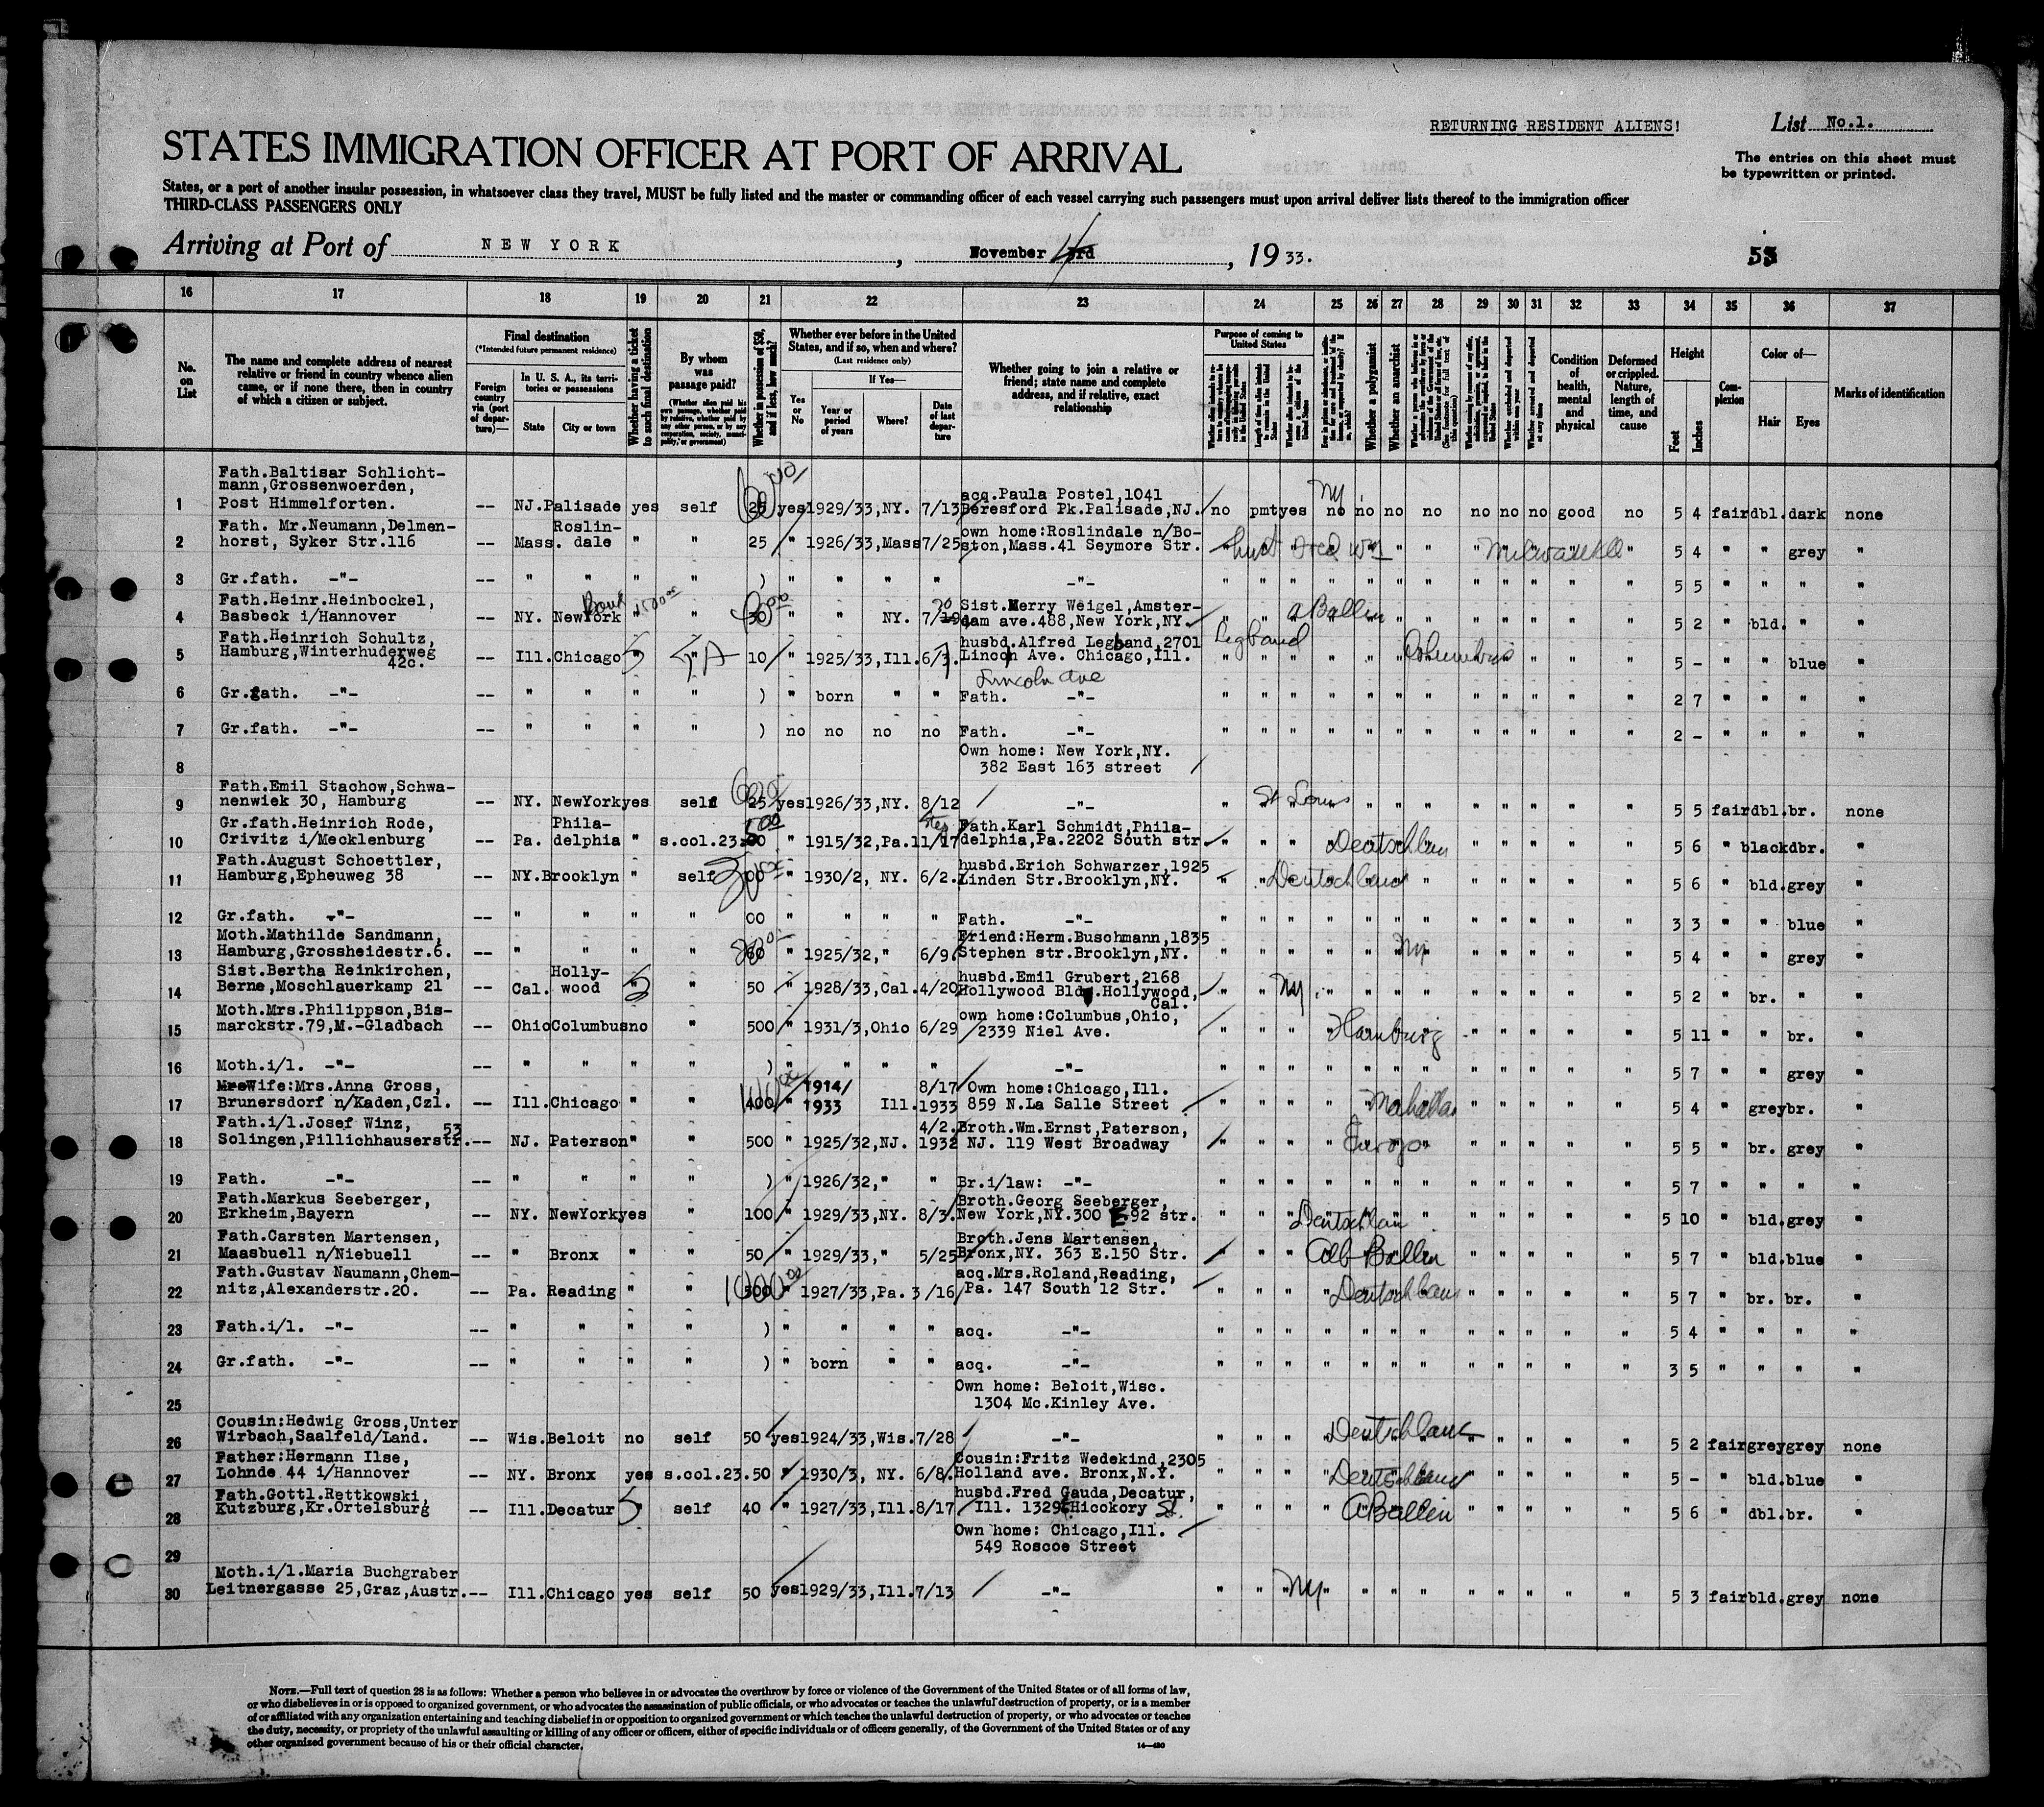 RETURNING RESIDENT ALIENS!
List No.1.
STATES IMMIGRATION OFFICER AT PORT OF ARRIVAL
The entries on this sheet must
be typewritten or printed.
States, or a port of another insular possession, in whatsoever class they travel, MUST be fully listed and the master or commanding officer of each vessel carrying such passengers must upon arrival deliver lists thereof to the immigration officer
THIRD-CLASS PASSENGERS ONLY
Arriving at Port of NEW YORK, November 4 3rd, 1933.
16 17 18 19 20 21 22 23 24 25 26 27 28 29 30 31 32 33 34 35 36 37
No. on List
The name and complete address of nearest relative or friend in country whence alien came, or if none there, then in country of which a citizen or subject.
Final destination
(*Intended future permanent residence)
Foreign country via (port of departure)—
In U. S. A., its territories or possessions
State
City or town
Whether having a ticket to such final destination
By whom was passage paid?
(Whether alien paid his own passage, whether paid by relative, whether paid by any other person, or by any corporation, society, municipality, or government)
Whether in possession of $50, and if less, how much?
Whether ever before in the United States, and if so, when and where?
(Last residence only)
Yes or No
If Yes—
Year or period of years
Where?
Date of last departure
Whether going to join a relative or friend; state name and complete address, and if relative, exact relationship
Purpose of coming to United States
Whether a polygamist
Whether an anarchist
Condition of health, mental and physical
Deformed or crippled. Nature, length of time, and cause
Height
Feet
Inches
Complexion
Color of—
Hair
Eyes
Marks of identification
Fath.Baltisar Schlicht-
mann,Grossenwoerden, acq.Paula Postel,1041 Ny
1 Post Himmelforten. -- NJ. Palisade yes self 25 yes 1929/33,NY. 7/13 Beresford Pk.Palisade,NJ. no pmt yes no no no no no no no good no 5 4 fair dbl. dark none
Fath. Mr.Neumann,Delmen- Roslin- own home:Roslindale n/Bo-
2 horst, Syker Str.116 -- Mass. dale " " 25 " 1926/33,Mass 7/25 ston,Mass.41 Seymore Str. " " " " " " " " " " " " 5 4 " " grey "
3 Gr.fath. -"- -- " " " " ) " " " " -"- " " " " " " " " " " " " 5 5 " " " "
Fath.Heinr.Heinbockel, Sist.Merry Weigel,Amster- A Ballin
4 Basbeck i/Hannover -- NY. NewYork " " 30 " " NY. 7/ dam ave.488,New York,NY. " " " " " " " " " " " " 5 2 " bld. " "
Fath.Heinrich Schultz, husbd.Alfred Legband,2701 Legband
5 Hamburg,Winterhuderweg -- Ill. Chicago " 10 " 1925/33,Ill. 6/ Lincoln Ave. Chicago,Ill. Columbus " " " " " " " " " " " " 5 - " " blue "
42c.
Lincoln Ave
6 Gr.fath. -"- -- " " " " ) " born " " Fath. -"- " " " " " " " " " " " " 2 7 " " " "
7 Gr.fath. -"- -- " " " " ) no no no no Fath. -"- " " " " " " " " " " " " 2 - " " " "
Own home: New York,NY.
8 382 East 163 street
Fath.Emil Stachow,Schwa-
9 nenwiek 30, Hamburg -- NY. NewYork yes self 25 yes 1926/33,NY. 8/12 -"- St Louis " " " " " " " " " " 5 5 fair dbl. br. none
Gr.fath.Heinrich Rode, Phila- Fath.Karl Schmidt,Phila-
10 Crivitz i/Mecklenburg -- Pa. delphia " s.col.23. 00 " 1915/32,Pa. 11/17 delphia,Pa.2202 South str. " " " Deutschlan " " " " " " 5 6 " black dbr. "
Fath.August Schoettler, husbd.Erich Schwarzer,1925
11 Hamburg,Epheuweg 38 -- NY. Brooklyn " self 00 " 1930/2, NY. 6/2. Linden Str.Brooklyn,NY. " Deutschland " " " " " " " 5 6 " bld. grey "
12 Gr.fath. -"- -- " " " " 00 " " " " Fath. -"- " " " " " " " " " " " " 3 3 " " blue "
Moth.Mathilde Sandmann, Friend:Herm.Buschmann,1835
13 Hamburg,Grossheidestr.6. -- " " " " " 1925/32," 6/9. Stephen str.Brooklyn,NY. " " " " " Ny " " " " " " 5 4 " " grey "
Sist.Bertha Reinkirchen, Holly- husbd.Emil Grubert,2168
14 Berne,Moschlauerkamp 21 -- Cal. wood " " 50 " 1928/33,Cal. 4/20 Hollywood Bld .Hollywood, " " Ny " " " " " " " " " 5 2 " br. " "
Cal.
Moth.Mrs.Philippson,Bis- own home:Columbus,Ohio,
15 marckstr.79,M.-Gladbach -- Ohio Columbus no " 500 " 1931/3,Ohio 6/29 2339 Niel Ave. " " " Hamburg " " " " " " 5 11 " " br. "
16 Moth.i/l. -"- -- " " " " ) " " " " -"- " " " " " " " " " " " " 5 7 " " grey "
Wife:Mrs.Anna Gross, 1914/ 8/17 Own home:Chicago,Ill.
17 Brunersdorf n/Kaden,Czl. -- Ill. Chicago " " 400 " 1933 Ill. 1933 859 N.La Salle Street " " " " " " " " " " 5 4 " grey br. "
Fath.i/l.Josef Winz, 53 4/2. Broth.Wm.Ernst,Paterson,
18 Solingen,Pillichhauserstr. -- NJ. Paterson " " 500 " 1925/32,NJ. 1932 NJ. 119 West Broadway " " " Europa " " " " " " 5 5 " br. grey "
19 Fath. -"- -- " " " " ) " 1926/32," " Br.i/law: -"- " " " " " " " " " " " " 5 7 " " " "
Fath.Markus Seeberger, Broth.Georg Seeberger,
20 Erkheim,Bayern -- NY. NewYork yes " 100 " 1929/33,NY. 8/3. New York,NY.300 E 92 str. " " Deutschlan " " " " " " 5 10 " bld. grey "
Fath.Carsten Martensen, Broth.Jens Martensen,
21 Maasbuell n/Niebuell -- " Bronx " " 50 " 1929/33," 5/25 Bronx,NY. 363 E.150 Str. " " " Alb Ballin " " " " " " 5 7 " bld. blue "
Fath.Gustav Naumann,Chem- 1000 acq.Mrs.Roland,Reading,
22 nitz,Alexanderstr.20. -- Pa. Reading " " 500 " 1927/33,Pa. 3/16 Pa. 147 South 12 Str. " " " Deutschlan " " " " " " 5 7 " br. br. "
23 Fath.i/l. -"- -- " " " " ) " " " " acq. -"- " " " " " " " " " " " " 5 4 " " " "
24 Gr.fath. -"- -- " " " " ) " born " " acq. -"- " " " " " " " " " " " " 3 5 " " " "
Own home: Beloit,Wisc.
25 1304 Mc.Kinley Ave.
Cousin:Hedwig Gross,Unter
26 Wirbach,Saalfeld/Land. -- Wis. Beloit no self 50 yes 1924/33,Wis. 7/28 -"- " " " Deutschland " " " " " " 5 2 fair grey grey none
Father:Hermann Ilse, Cousin:Fritz Wedekind,2305
27 Lohnde 44 i/Hannover -- NY. Bronx yes s.col.23.50 " 1930/3, NY. 6/8. Holland ave. Bronx,N.Y. " " " Deutschland " " " " " " 5 - " bld. blue "
Fath.Gottl.Rettkowski, husbd.Fred Gauda,Decatur,
28 Kutzburg,Kr.Ortelsburg -- Ill. Decatur self 40 " 1927/33,Ill. 8/17 Ill. 1329 Hicokory St. " " " A Ballin " " " " " " 5 6 " dbl. br. "
Own home: Chicago,Ill.
29 549 Roscoe Street
Moth.i/l.Maria Buchgraber
30 Leitnergasse 25,Graz,Austr. -- Ill. Chicago yes self 50 yes 1929/33,Ill. 7/13 -"- " " Ny " " " " " " " " " 5 3 fair bld. grey none
NOTE.—Full text of question 28 is as follows: Whether a person who believes in or advocates the overthrow by force or violence of the Government of the United States or of all forms of law,
or who disbelieves in or is opposed to organized government, or who advocates the assassination of public officials, or who advocates or teaches the unlawful destruction of property, or is a member
of or affiliated with any organization entertaining and teaching disbelief in or opposition to organized government or which teaches the unlawful destruction of property, or who advocates or teaches
the duty, necessity, or propriety of the unlawful assaulting or killing of any officer or officers, either of specific individuals or of officers generally, of the Government of the United States or of any
other organized government because of his or their official character.